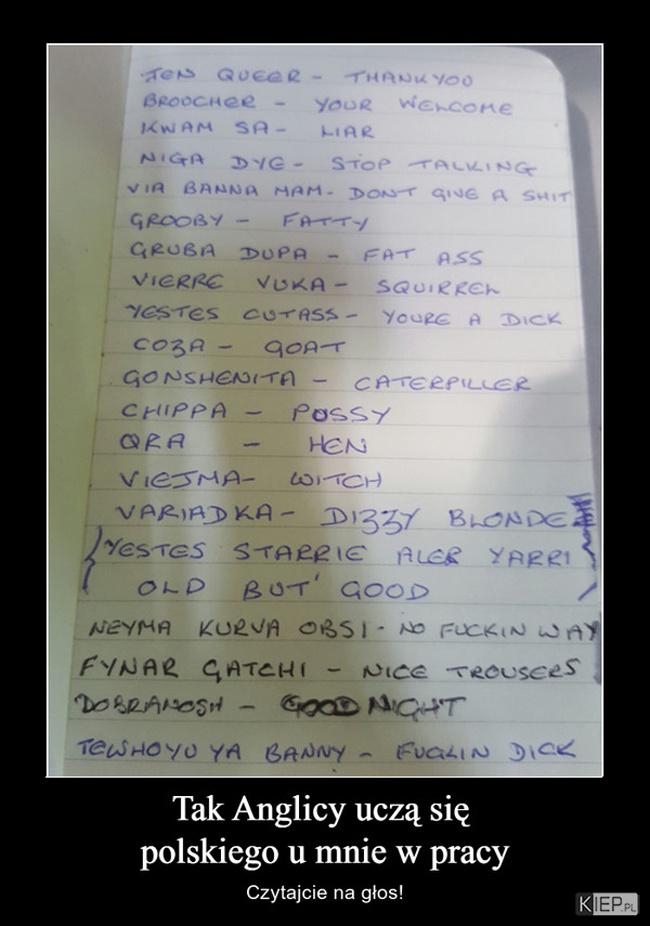 JEN QUEER - THANKYOU
BROOCHER - YOUR WELCOME
KWAM SA - LIAR
NIGA DYE - STOP TALKING
VIA BANNA MAM - DONT GIVE A SHIT
GROOBY - FATTY
GRUBA DUPA - FAT ASS
VIERRE VUKA - SQUIRREL
YESTES CUTASS - YOURE A DICK
COZA - GOAT
GONSHENITA - CATERPILLER
CHIPPA - PUSSY
QRA - HEN
VIEJMA - WITCH
VARIADKA - DIZZY BLONDE
YESTES STARRIE ALER YARRI
OLD BUT GOOD
NEYMA KURVA OBSI - NO FUCKIN WAY
FYNAR GATCHI - NICE TROUSERS
DOBRANOSH - GOOD NIGHT
TEWHOYU YA BANNY - FUCKIN DICK
Tak Anglicy uczą się
polskiego u mnie w pracy
Czytajcie na głos!
KIEP.PL